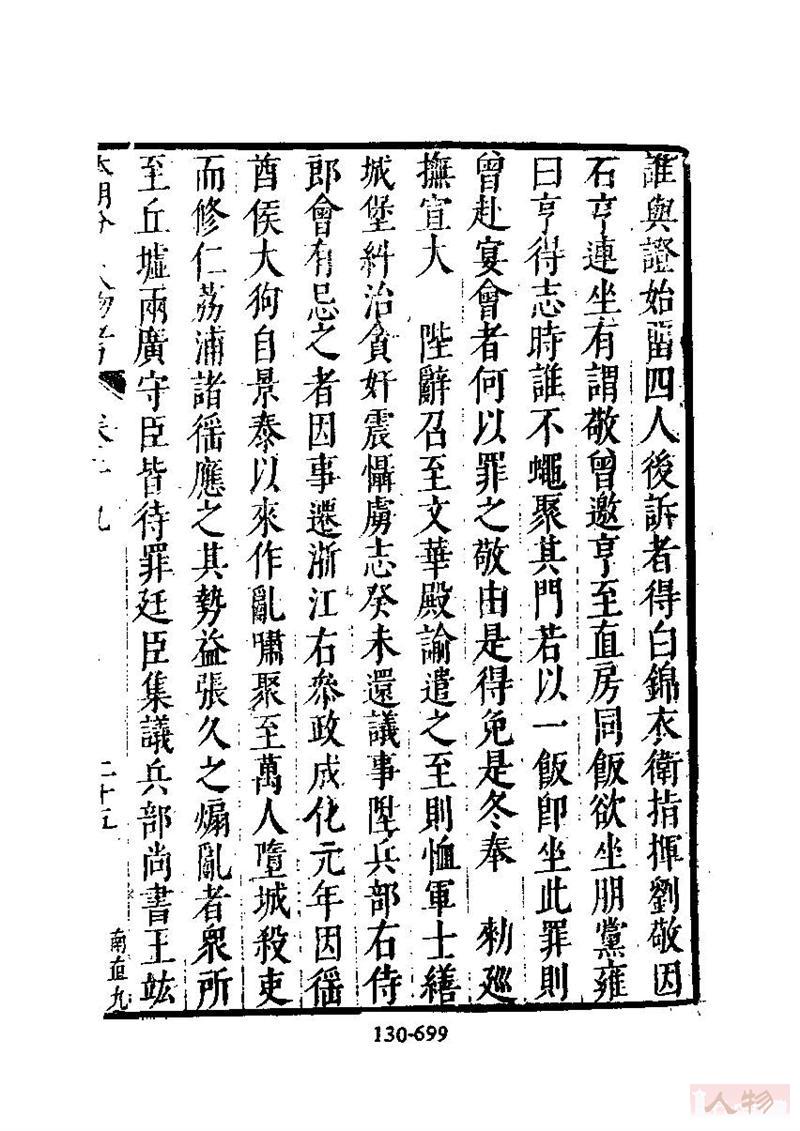 誰與證始畱四人後訴者得白錦衣衛指揮劉敬因
石亨連坐有謂敬曾邀亨至直房同飯欲坐朋黨雍
曰亨得志時誰不蠅聚其門若以一飯卽坐此罪則
曾赴宴會者何以罪之敬由是得免是冬奉　勑廵
撫宣大　陛辭召至文華殿諭遣之至則恤軍士繕
城堡糾治貪奸震懾虜志癸未還議事陞兵部右侍
郎會有忌之者因事遷浙江右叅政成化元年因猺
酋侯大狗自景泰以來作亂嘯聚至萬人墮城殺吏
而修仁荔浦諸猺應之其勢益張久之煽亂者衆所
至丘墟兩廣守臣皆待罪廷臣集議兵部尚書王竑
本朝分 人物考 卷 十九
二十五
南直九
130-699
人物